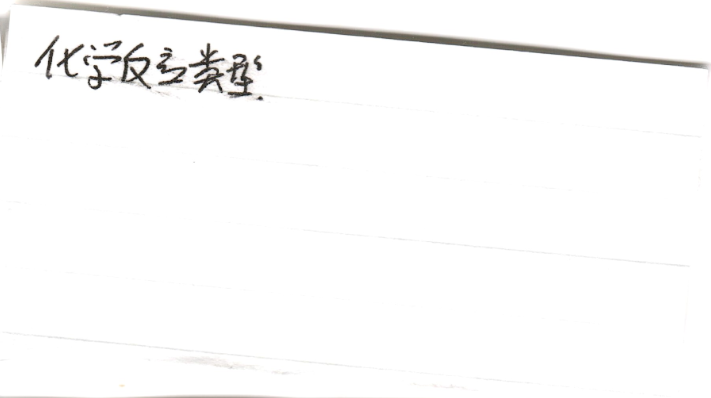 化学反应类型.